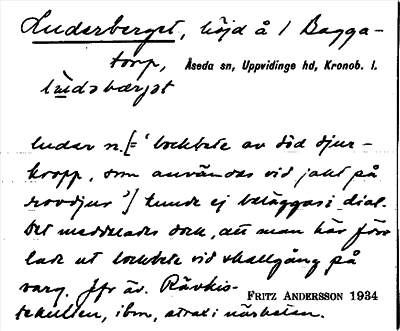 Luderberget, höjd å 1 Bagga-
torp, Åseda sn, Uppvidinge hd, Kronob. l.
lùdəbærjət
luder n. [= 'lockbete av död djur-
kropp, som användes vid jakt på
rovdjur'] kunde ej beläggas i dial.
Det meddelades dock, att man här förr
lade ut lockbete vid skallgång på
varg. Jfr äv. Rävkis-
tekullen, ibm, strax i närheten.
FRITZ ANDERSSON 1934